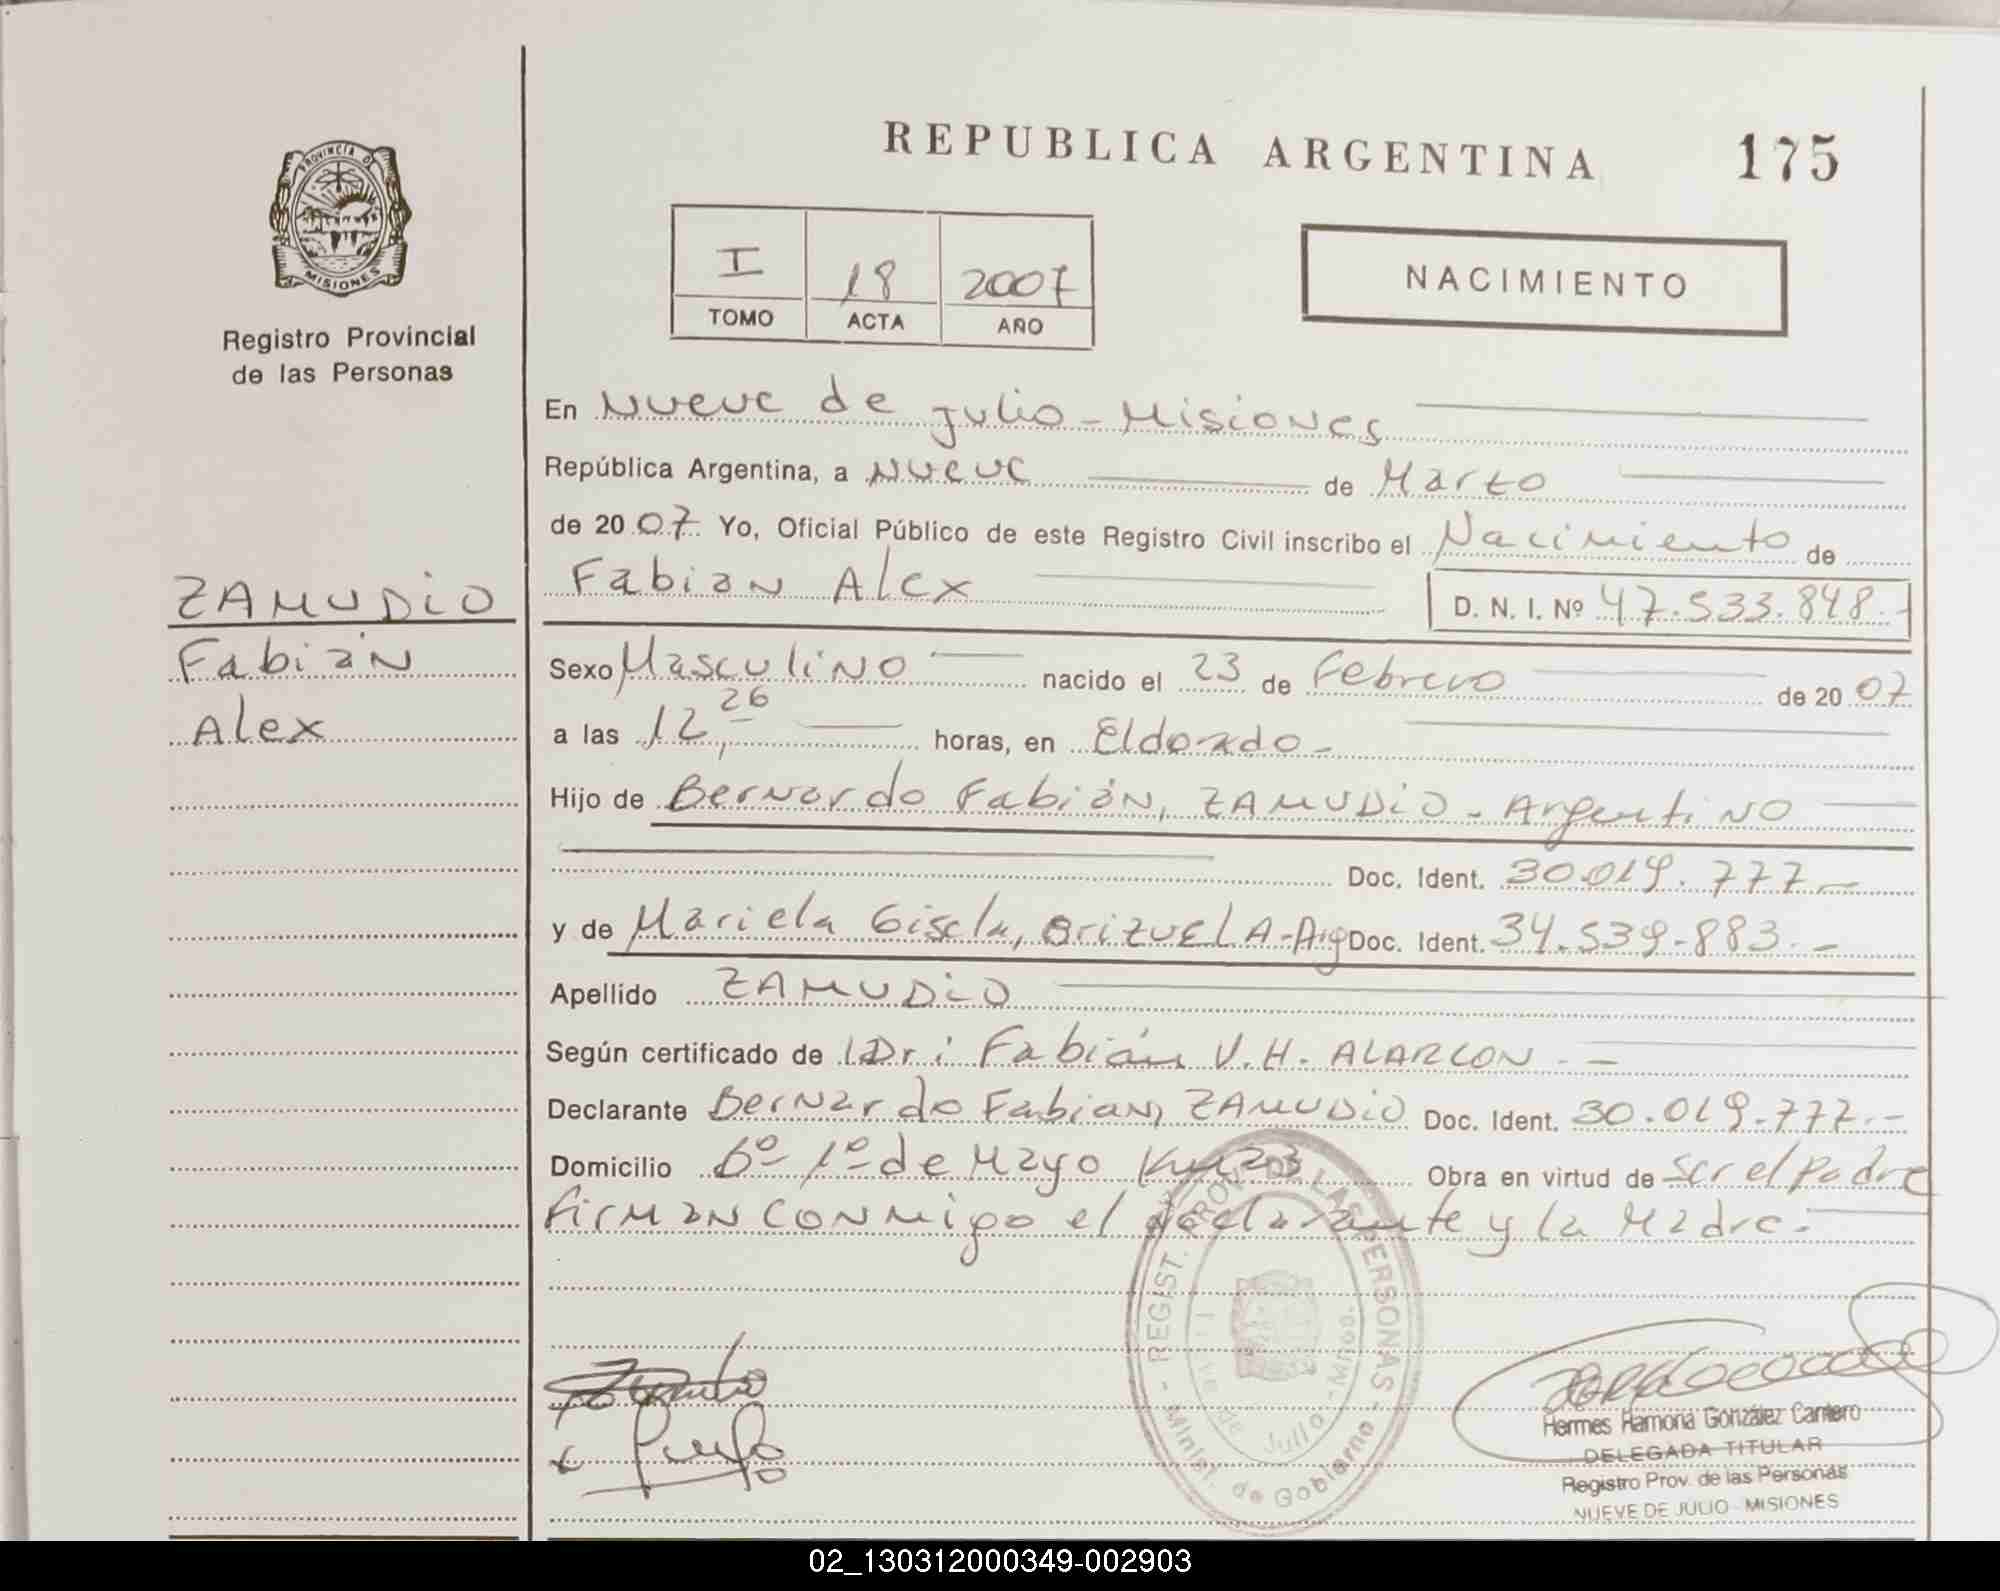 PROVINCIA DE
MISIONES
Registro Provincial
de las Personas
REPUBLICA ARGENTINA 175
I 18 2007
TOMO ACTA AÑO
NACIMIENTO
En Nueve de Julio - Misiones
República Argentina, a Nueve de Marzo
de 2007. Yo, Oficial Público de este Registro Civil inscribo el Nacimiento de
Fabian Alex D. N. I. Nº 47.533.848.-
ZAMUDIO
Fabián
Alex
Sexo Masculino nacido el 23 de Febrero de 2007
a las 12,26 horas, en Eldorado-
Hijo de Bernardo Fabián, ZAMUDIO - Argentino
Doc. Ident. 30.019.777-
y de Mariela Gisela, BRIZUELA-Arg Doc. Ident. 34.539.883.-
Apellido ZAMUDIO
Según certificado de Dr: Fabián V.H. ALARCON.-
Declarante Bernardo Fabian, ZAMUDIO Doc. Ident. 30.019.777.-
Domicilio Bº 1º de Mayo Km 23 Obra en virtud de ser el padre
firman conmigo el declarante y la Madre.
REGIST. PROV. DE LAS PERSONAS
- Minist. de Gobierno -
de Julio - Mnes.
Hermes Ramona González Cantero
DELEGADA TITULAR
Registro Prov. de las Personas
NUEVE DE JULIO - MISIONES
02_130312000349-002903